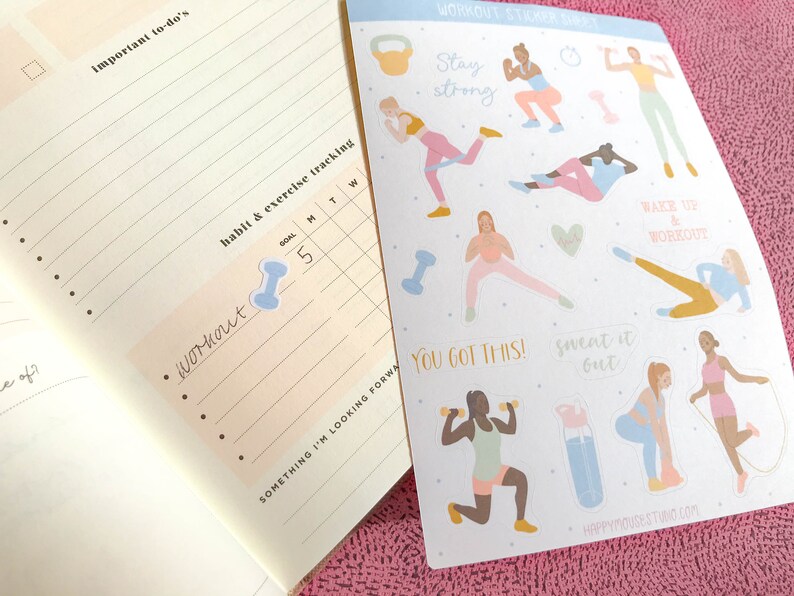 important to-do's
habit & exercise tracking
GOAL M T W
workout 5
SOMETHING I'M LOOKING FORWA
e of?
WORKOUT STICKER SHEET
Stay
strong
WAKE UP
&
WORKOUT
YOU GOT THIS!
sweat it
out
HAPPYMOUSESTUDIO.COM